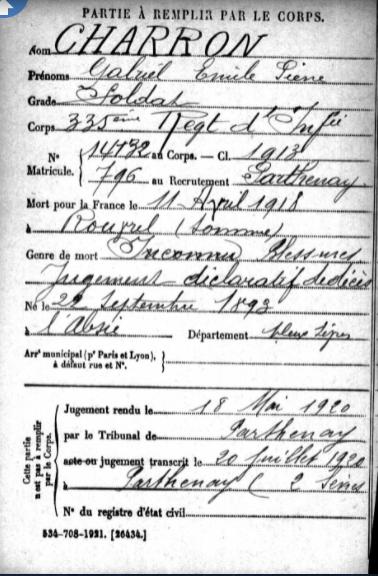 PARTIE À REMPLIR PAR LE CORPS.
Nom CHARRON
Prénoms Gabriel Emile Pierre
Grade Soldat
Corps 335ème Regt d'Inf^ie
N° 14732 au Corps. — Cl. 1913
Matricule. 796 au Recrutement Parthenay
Mort pour la France le 11 Avril 1918
à Rouvrel (Somme)
Genre de mort Inconnu Blessures
Jugement déclaratif de décès
Né le 22 Septembre 1893
à l'Absie Département Deux Sèvres
Arr^t municipal (p^r Paris et Lyon),
à défaut rue et N°.
Cette partie
n'est pas à remplir
par le Corps.
Jugement rendu le 18 Mai 1920
par le Tribunal de Parthenay
acte ou jugement transcrit le 20 Juillet 1920
à Parthenay (2 Sèvres
N° du registre d'état civil
534-708-1921. [26434.]